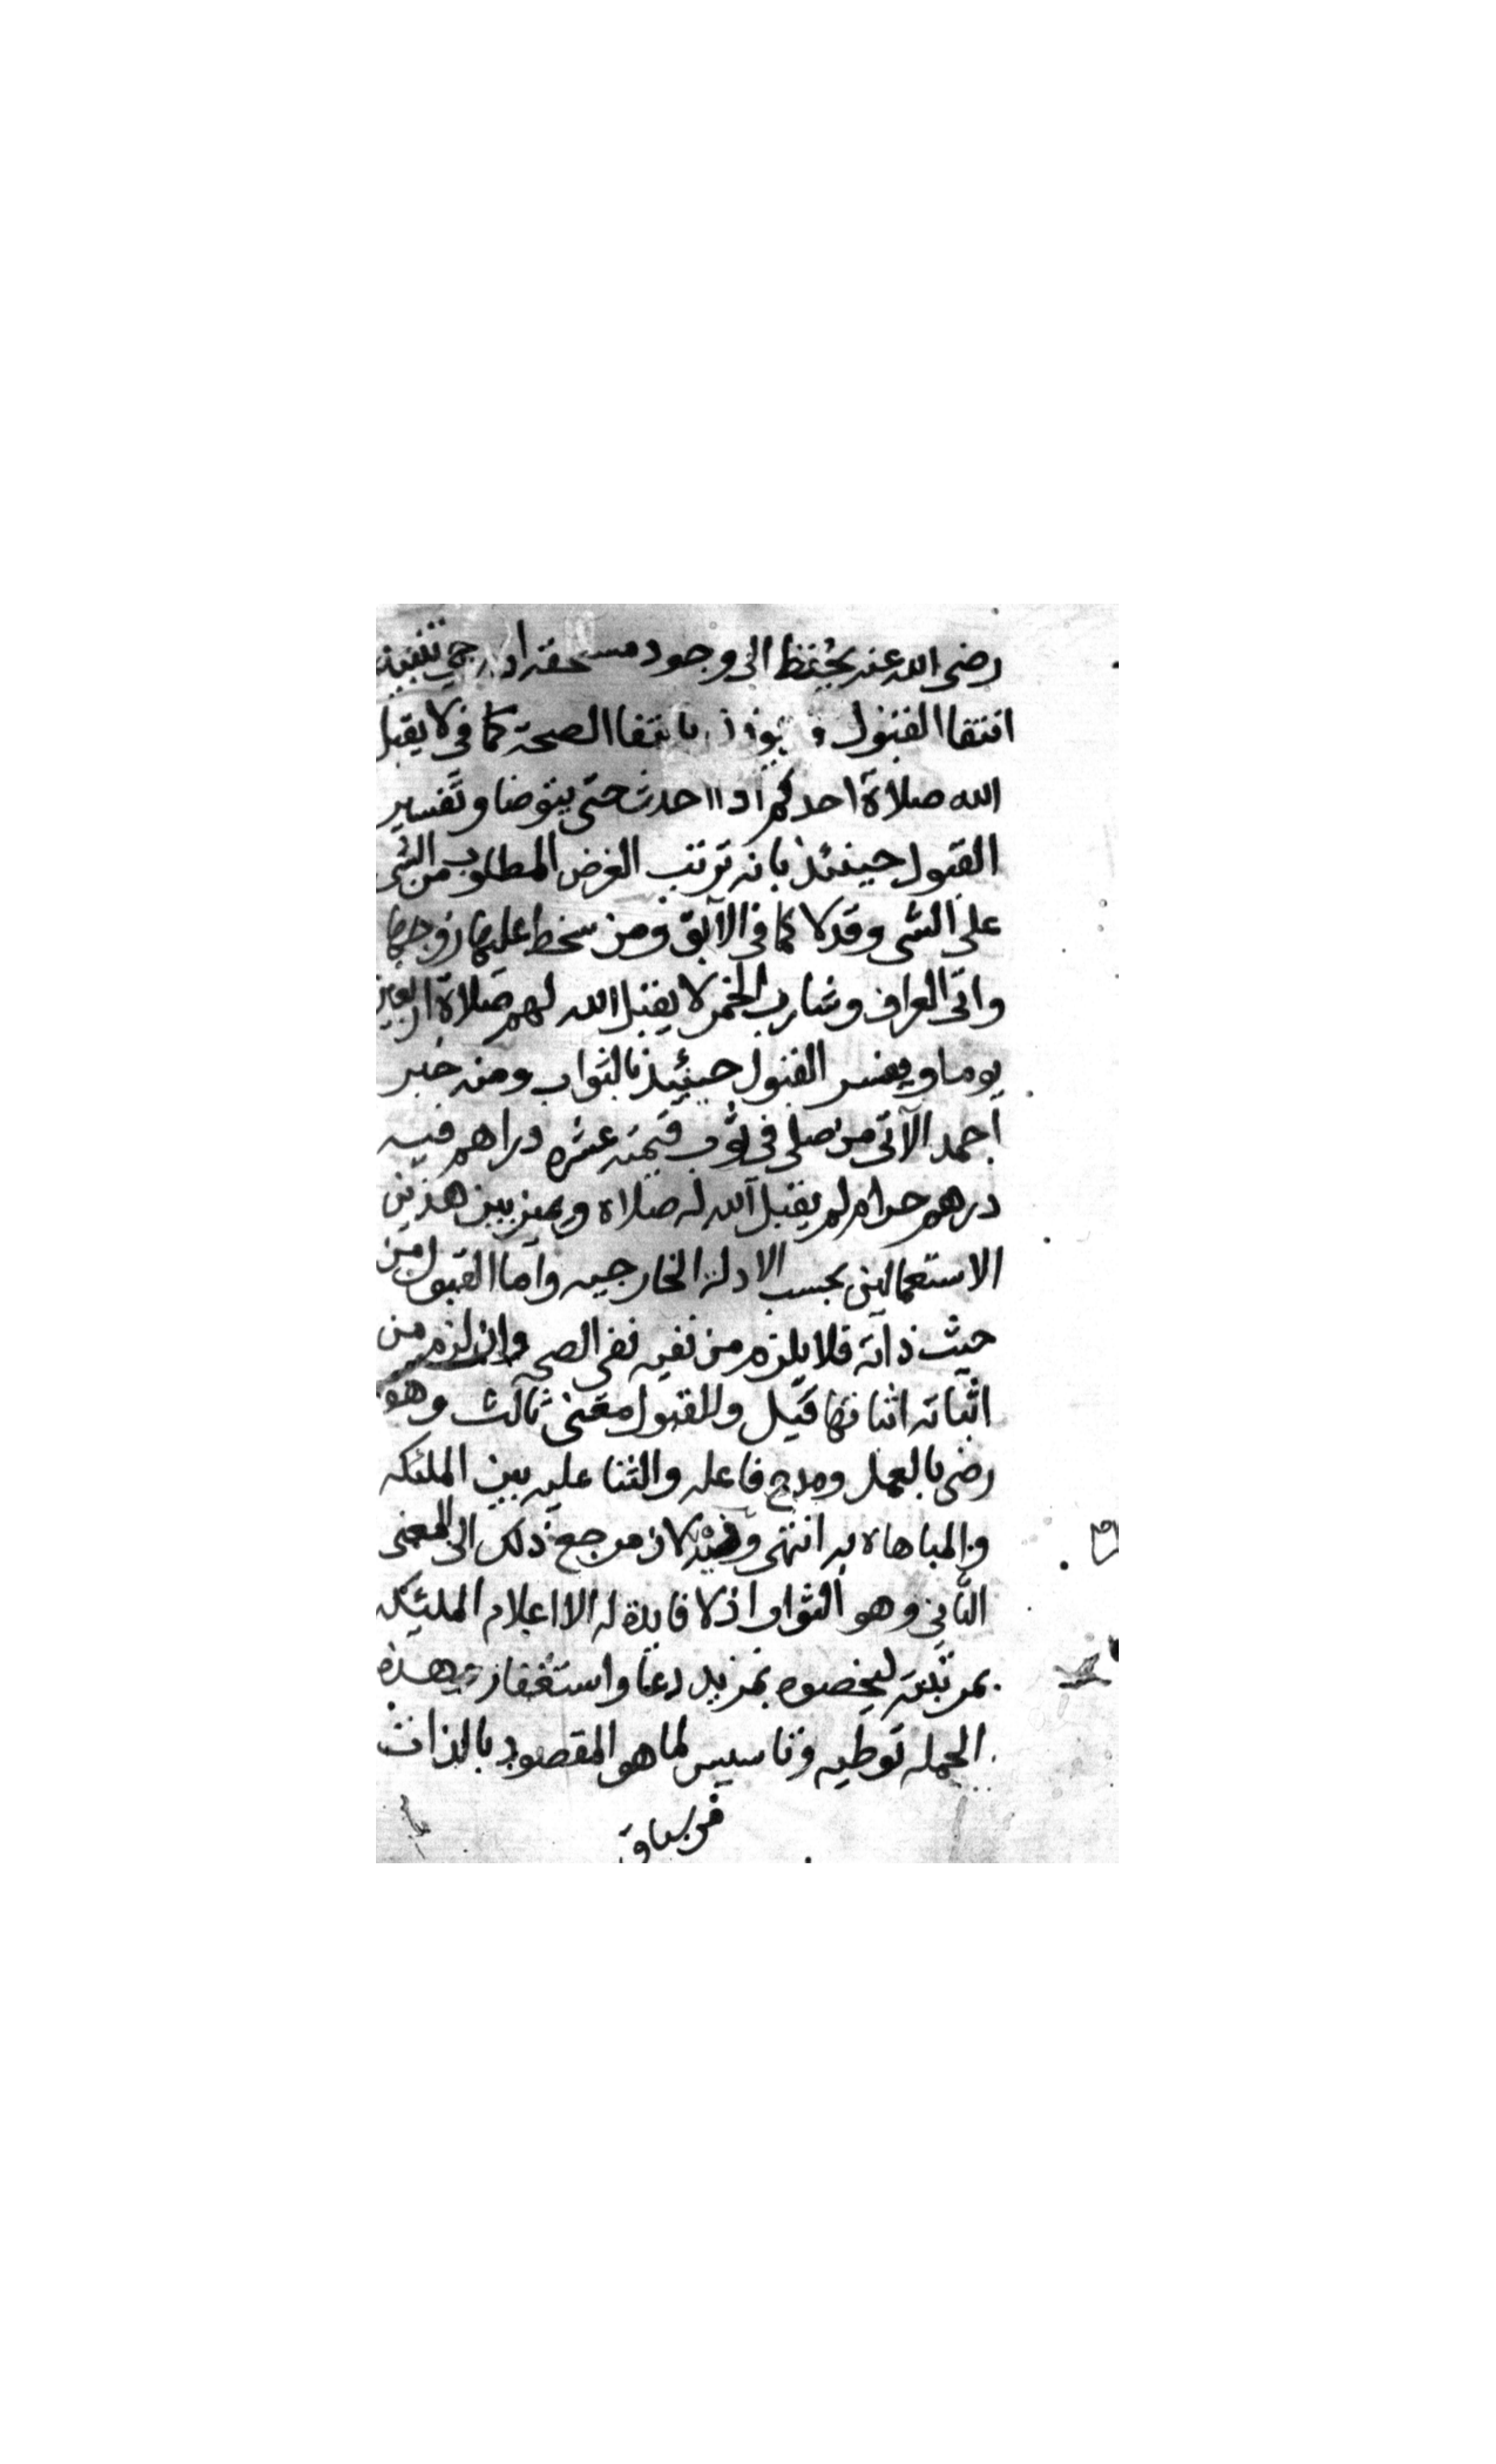 رضى الله عنه يحفظ الى وجود مستحقه
انتفا القبول بانتفا الصحة كما فى لا يقبل
الله صلاة احدكم اذا احدث حتى يتوضا وتفسير
القبول حينئذ بانه ترتب الغرض المطلوب من الشى
على الشى وقد لا كما فى الآبق ومن سخط عليها زوجها
واتى العراف وشارب الخمر لا يقبل الله لهم صلاة اربعين
يوما ويفسر القبول حينئذ بالثواب ومنه خبر
احمد الآتى من صلى فى ثوب قيمته عشره دراهم فيه
درهم حرام لم يقبل الله له صلاة ويميز بين هذين
الاستعمالين بحسب الادلة الخارجيه واما القبول من
حيث ذاته فلا يلزم من نفيه نفى الصحه وان لزم من
اثباته اثباتها قيل وللقبول معنى ثالث وهو
رضى بالعمل ومدح فاعله والثنا عليه بين الملئكه
والمباهاة به انتهى وفيه لان مرجع ذلك الى المعنى
الثانى وهو الثواب اذ لا فايدة له الا اعلام الملئكه
بمرتبته ليخصوه بمزيد دعا واستغفار وهذه
الجمله توطيه وتاسيس لما هو المقصود بالذات
من سياق